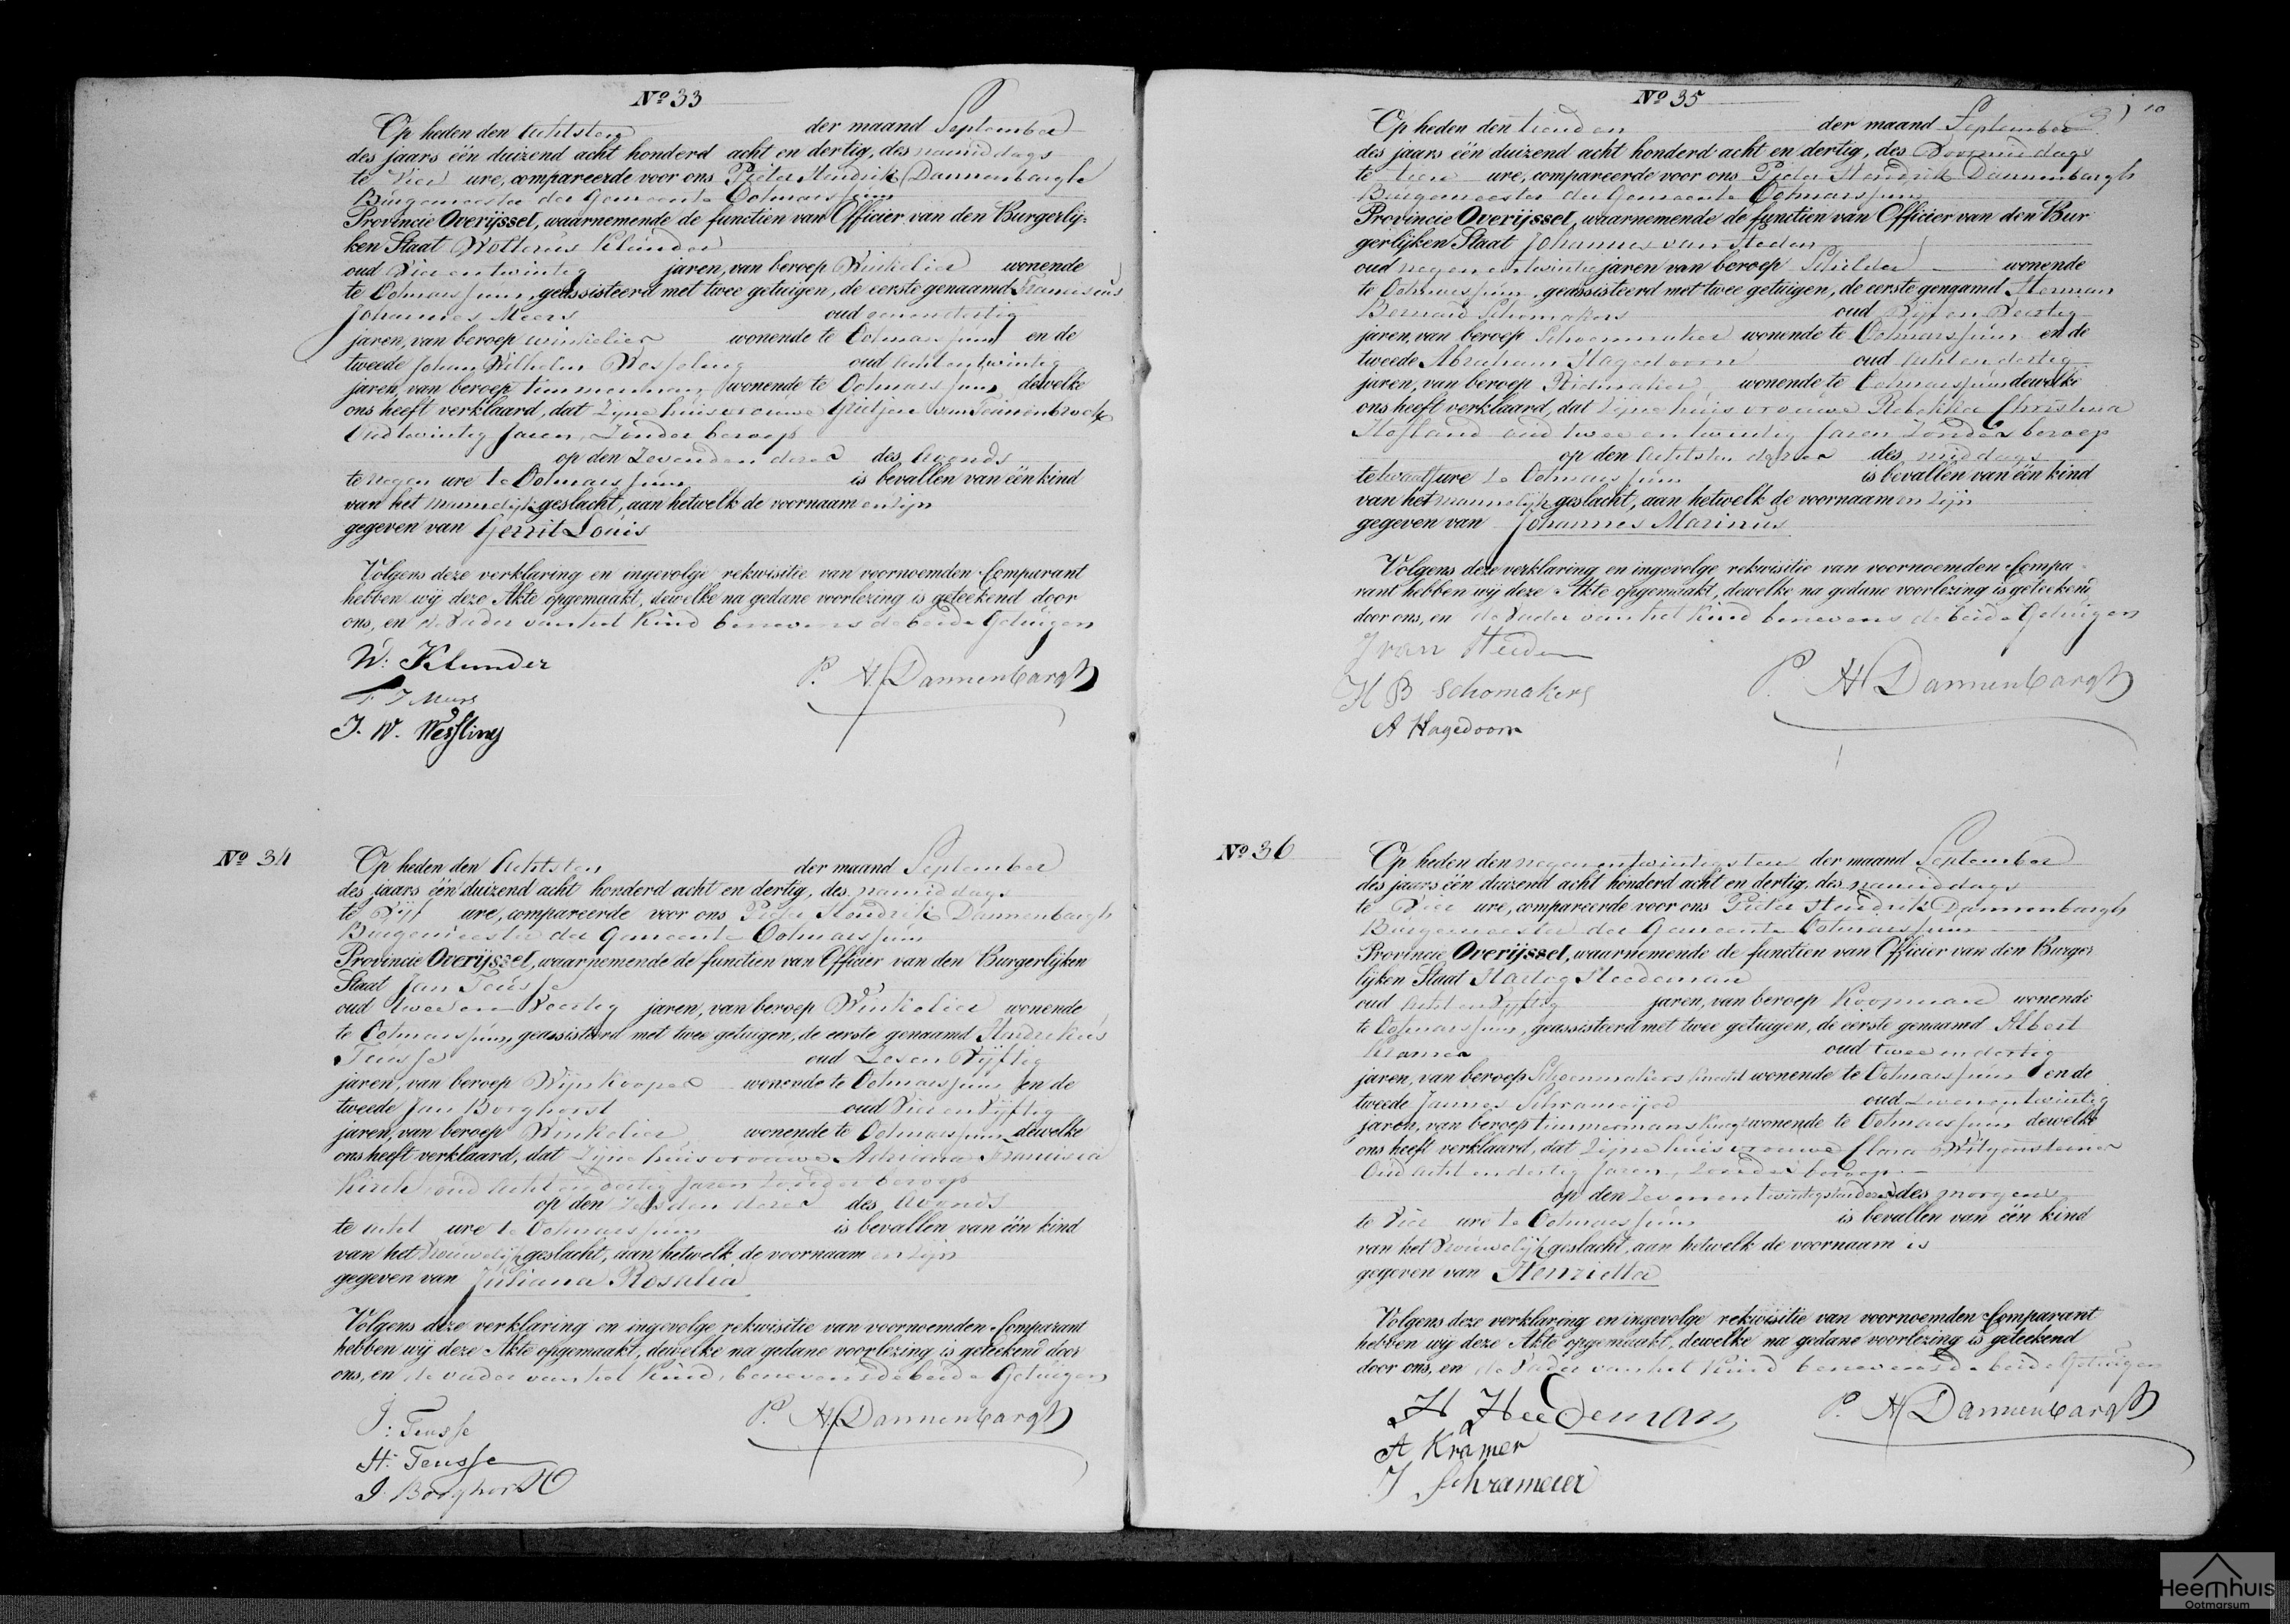 Nº 33
Op heden den Achtsten der maand September
des jaars één duizend acht honderd acht en dertig, des namiddags
te Vier ure, compareerde voor ons Pieter Hendrik Dannenbargh
Burgemeester der Gemeente Ootmarssum
Provincie Overijssel, waarnemende de functien van Officier van den Burgerlij-
ken Staat Wolterus Klunder
oud Vier en twintig jaren, van beroep Winkelier wonende
te Ootmarssum, geässisteerd met twee getuigen, de eerste genaamd Franciscus
Johannes Meers oud een en dertig
jaren, van beroep winkelier wonende te Ootmarssum en de
tweede Johan Wilhelm Wesseling oud Acht en twintig
jaren, van beroep timmerman, wonende te Ootmarssum dewelke
ons heeft verklaard, dat Zijne huisvrouwe Grietjen van
Oud twintig Jaren, Zonder beroep
op den Zevenden dezer des Avonds
te negen ure te Ootmarssum is bevallen van één kind
van het mannelijk geslacht, aan hetwelk de voornaam en zijn
gegeven van Gerrit Louis
Volgens deze verklaring en ingevolge rekwisitie van voornoemden Comparant
hebben wij deze Akte opgemaakt, dewelke na gedane voorlezing is geteekend door
ons, en de Vader van het Kind benevens de beide Getuigen
W: Klunder
P. H. Dannenbargh
F J Meers
J. W. Wessling
Nº 34
Op heden den Achtsten der maand September
des jaars één duizend acht honderd acht en dertig, des namiddags
te Vijf ure, compareerde voor ons Pieter Hendrik Dannenbargh
Burgemeester der Gemeente Ootmarssum
Provincie Overijssel, waarnemende de functien van Officier van den Burgerlijken
Staat Jan Teusse
oud twee en Veertig jaren, van beroep Winkelier wonende
te Ootmarssum, geassisteerd met twee getuigen, de eerste genaamd Hendrikus
Teusse oud Zes en Vijftig
jaren, van beroep Wijnkooper wonende te Ootmarssum en de
tweede Jan Borghorst oud Vier en Vijftig
jaren, van beroep Winkelier wonende te Ootmarssum dewelke
ons heeft verklaard, dat Zijne huisvrouwe Adriana Francisca
Kirch, oud Acht en dertig Jaren Zonder beroep
op den Zesden dezer des Avonds
te acht ure te Ootmarssum is bevallen van één kind
van het Vrouwelijk geslacht, aan hetwelk de voornaam en zijn
gegeven van Juliana Rosalia
Volgens deze verklaring en ingevolge rekwisitie van voornoemden Comparant
hebben wij deze Akte opgemaakt, dewelke na gedane voorlezing is geteekend door
ons, en de vader van het Kind, benevens de beide Getuigen
J: Teusse
P. H. Dannenbargh
H: Teusse
J. Borghorst
Nº 35
10
Op heden den tienden der maand September
des jaars één duizend acht honderd acht en dertig, des Voormiddags
te tien ure, compareerde voor ons Pieter Hendrik Dannenbargh
Burgemeester der Gemeente Ootmarssum
Provincie Overijssel, waarnemende de functien van Officier van den Bur
gerlijken Staat Johannes van Heden
oud negen en twintig jaren van beroep Schilder wonende
te Ootmarssum, geässisteerd met twee getuigen, de eerste genaamd Herman
Bernard Schomakers oud Vijf en Veertig
jaren, van beroep Schoenmaker wonende te Ootmarssum en de
tweede Abraham Hagedoorn oud Acht en dertig
jaren, van beroep Rietmaker wonende te Ootmarssum dewelke
ons heeft verklaard, dat Zijne huisvrouwe Rebekka Christina
Hofland oud twee en twintig Jaren Zonder beroep
op den Achtsten dezer des middags
te twaalf ure te Ootmarssum is bevallen van één kind
van het mannelijk geslacht, aan hetwelk de voornaam en zijn
gegeven van Johannes Marinus
Volgens deze verklaring en ingevolge rekwisitie van voornoemden Compa-
rant hebben wij deze Akte opgemaakt, dewelke na gedane voorlezing is geteekend
door ons, en de Vader van het Kind benevens de beide Getuigen
J van Heden
P. H Dannenbargh
H B Schomakers
A Hagedoorn
Nº 36
Op heden den negen en twintigsten der maand September
des jaars één duizend acht honderd acht en dertig, des namiddags
te Vier ure, compareerde voor ons Pieter Hendrik Dannenbargh
Burgemeester der Gemeente Ootmarssum
Provincie Overijssel, waarnemende de functien van Officier van den Burger
lijken Staat Hartog Heedeman
oud Acht en Vijftig jaren, van beroep Koopman wonende
te Ootmarssum, geassisteerd met twee getuigen, de eerste genaamd Albert
Kramer oud twee en dertig
jaren, van beroep Schoenmakers knecht wonende te Ootmarssum en de
tweede Jannes Schrameijer oud Zeven en twintig
jaren, van beroep timmermans knegt wonende te Ootmarssum dewelke
ons heeft verklaard, dat Zijne huisvrouwe Clara Witgensteiner
Oud Acht en dertig Jaren, Zonder beroep
op den Zeven en twintigsten dezer des morgens
te Vier ure te Ootmarssum is bevallen van één kind
van het Vrouwelijk geslacht, aan hetwelk de voornaam is
gegeven van Henrietta
Volgens deze verklaring en ingevolge rekwisitie van voornoemden Comparant
hebben wij deze Akte opgemaakt, dewelke na gedane voorlezing is geteekend
door ons, en de Vader van het Kind benevens de beide Getuigen
H Heedeman
P. H Dannenbargh
A Kramer
J Schrameier
Heemhuis
Ootmarsum